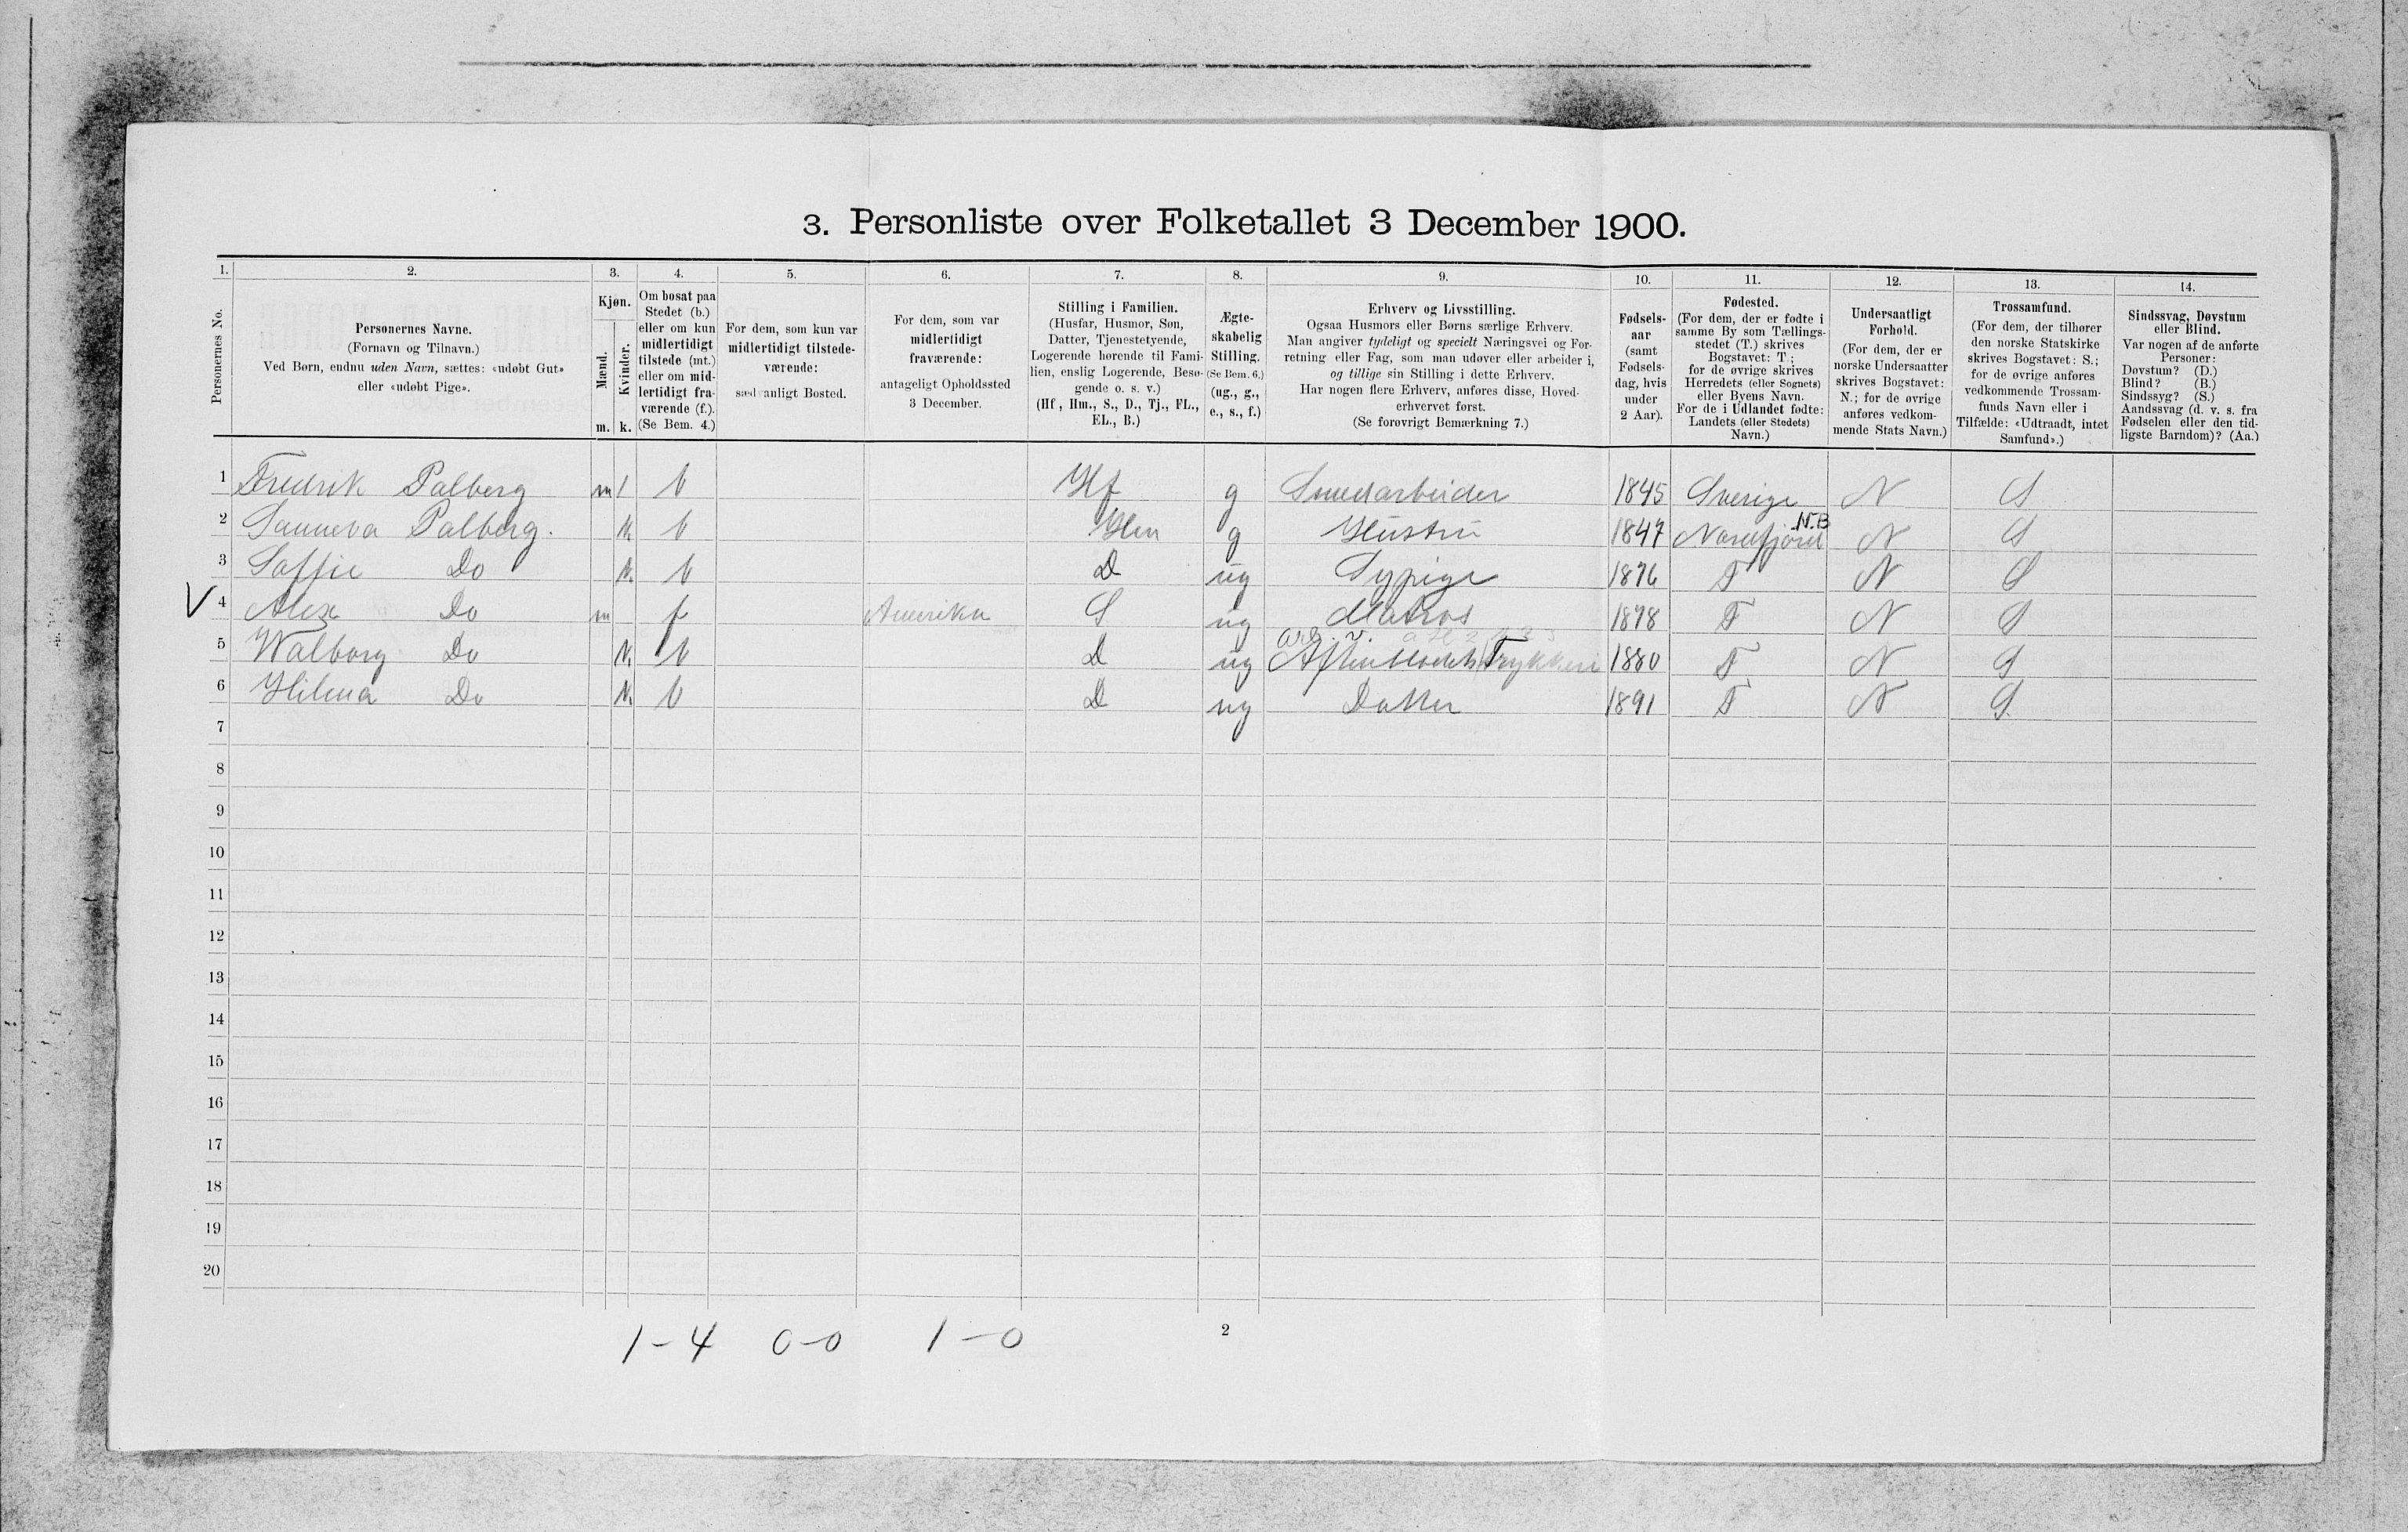 3. Personliste over Folketallet 3 December 1900.
1. 2. 3. 4. 5. 6. 7. 8. 9. 10. 11. 12. 13. 14.
Personernes No.
Personernes Navne.
(Fornavn og Tilnavn.)
Ved Børn, endnu uden Navn, sættes: «udøbt Gut»
eller «udøbt Pige».
Kjøn.
Mænd.
Kvinder.
m. k.
Om bosat paa
Stedet (b.)
eller om kun
midlertidigt
tilstede (mt.)
eller om mid-
lertidigt fra-
værende (f.).
(Se Bem. 4.)
For dem, som kun var
midlertidigt tilstede-
værende:
sædvanligt Bosted.
For dem, som var
midlertidigt
fraværende:
antageligt Opholdssted
3 December.
Stilling i Familien.
(Husfar, Husmor, Søn,
Datter, Tjenestetyende,
Logerende hørende til Fami-
lien, enslig Logerende, Besø-
gende o. s. v.)
(Hf, Hm., S., D., Tj., FL.,
EL., B.)
Ægte-
skabelig
Stilling.
(Se Bem. 6.)
(ug., g.,
e., s., f.)
Erhverv og Livsstilling.
Ogsaa Husmors eller Børns særlige Erhverv.
Man angiver tydeligt og specielt Næringsvei og For-
retning eller Fag, som man udøver eller arbeider i,
og tillige sin Stilling i dette Erhverv.
Har nogen flere Erhverv, anføres disse, Hoved-
erhvervet først.
(Se forøvrigt Bemærkning 7.)
Fødsels-
aar
(samt
Fødsels-
dag, hvis
under
2 Aar).
Fødested.
(For dem, der er fødte i
samme By som Tællings-
stedet (T.) skrives
Bogstavet: T.;
for de øvrige skrives
Herredets (eller Sognets)
eller Byens Navn.
For de i Udlandet fødte:
Landets (eller Stedets)
Navn.)
Undersaatligt
Forhold.
(For dem, der er
norske Undersaatter
skrives Bogstavet:
N.; for de øvrige
anføres vedkom-
mende Stats Navn.)
Trossamfund.
(For dem, der tilhører
den norske Statskirke
skrives Bogstavet: S.;
for de øvrige anføres
vedkommende Trossam-
funds Navn eller i
Tilfælde: «Udtraadt, intet
Samfund».)
Sindssvag, Døvstum
eller Blind.
Var nogen af de anførte
Personer:
Døvstum? (D.)
Blind? (B.)
Sindssyg? (S.)
Aandssvag (d. v. s. fra
Fødselen eller den tid-
ligste Barndom)? (Aa.)
1 Fredrik Palberg m b Hf g Smedarbeider 1845 Sverige N S
2 Sanneva Palberg. k. b Hm g Hustru 1847 Nordfjord N.B N S
3 Soffie Do k. b D ug Sypige 1876 T N S
V 4 Alex Do m f Amerika S ug Matros 1878 T N S
5 Walborg Do k. b D ug arb. v. Aftenbladets Trykkeri 1880 T N S
6 Hilma Do k. b D ug Datter 1891 T N S
7
8
9
10
11
12
13
14
15
16
17
18
19
20
1-4 0-0 1-0
2